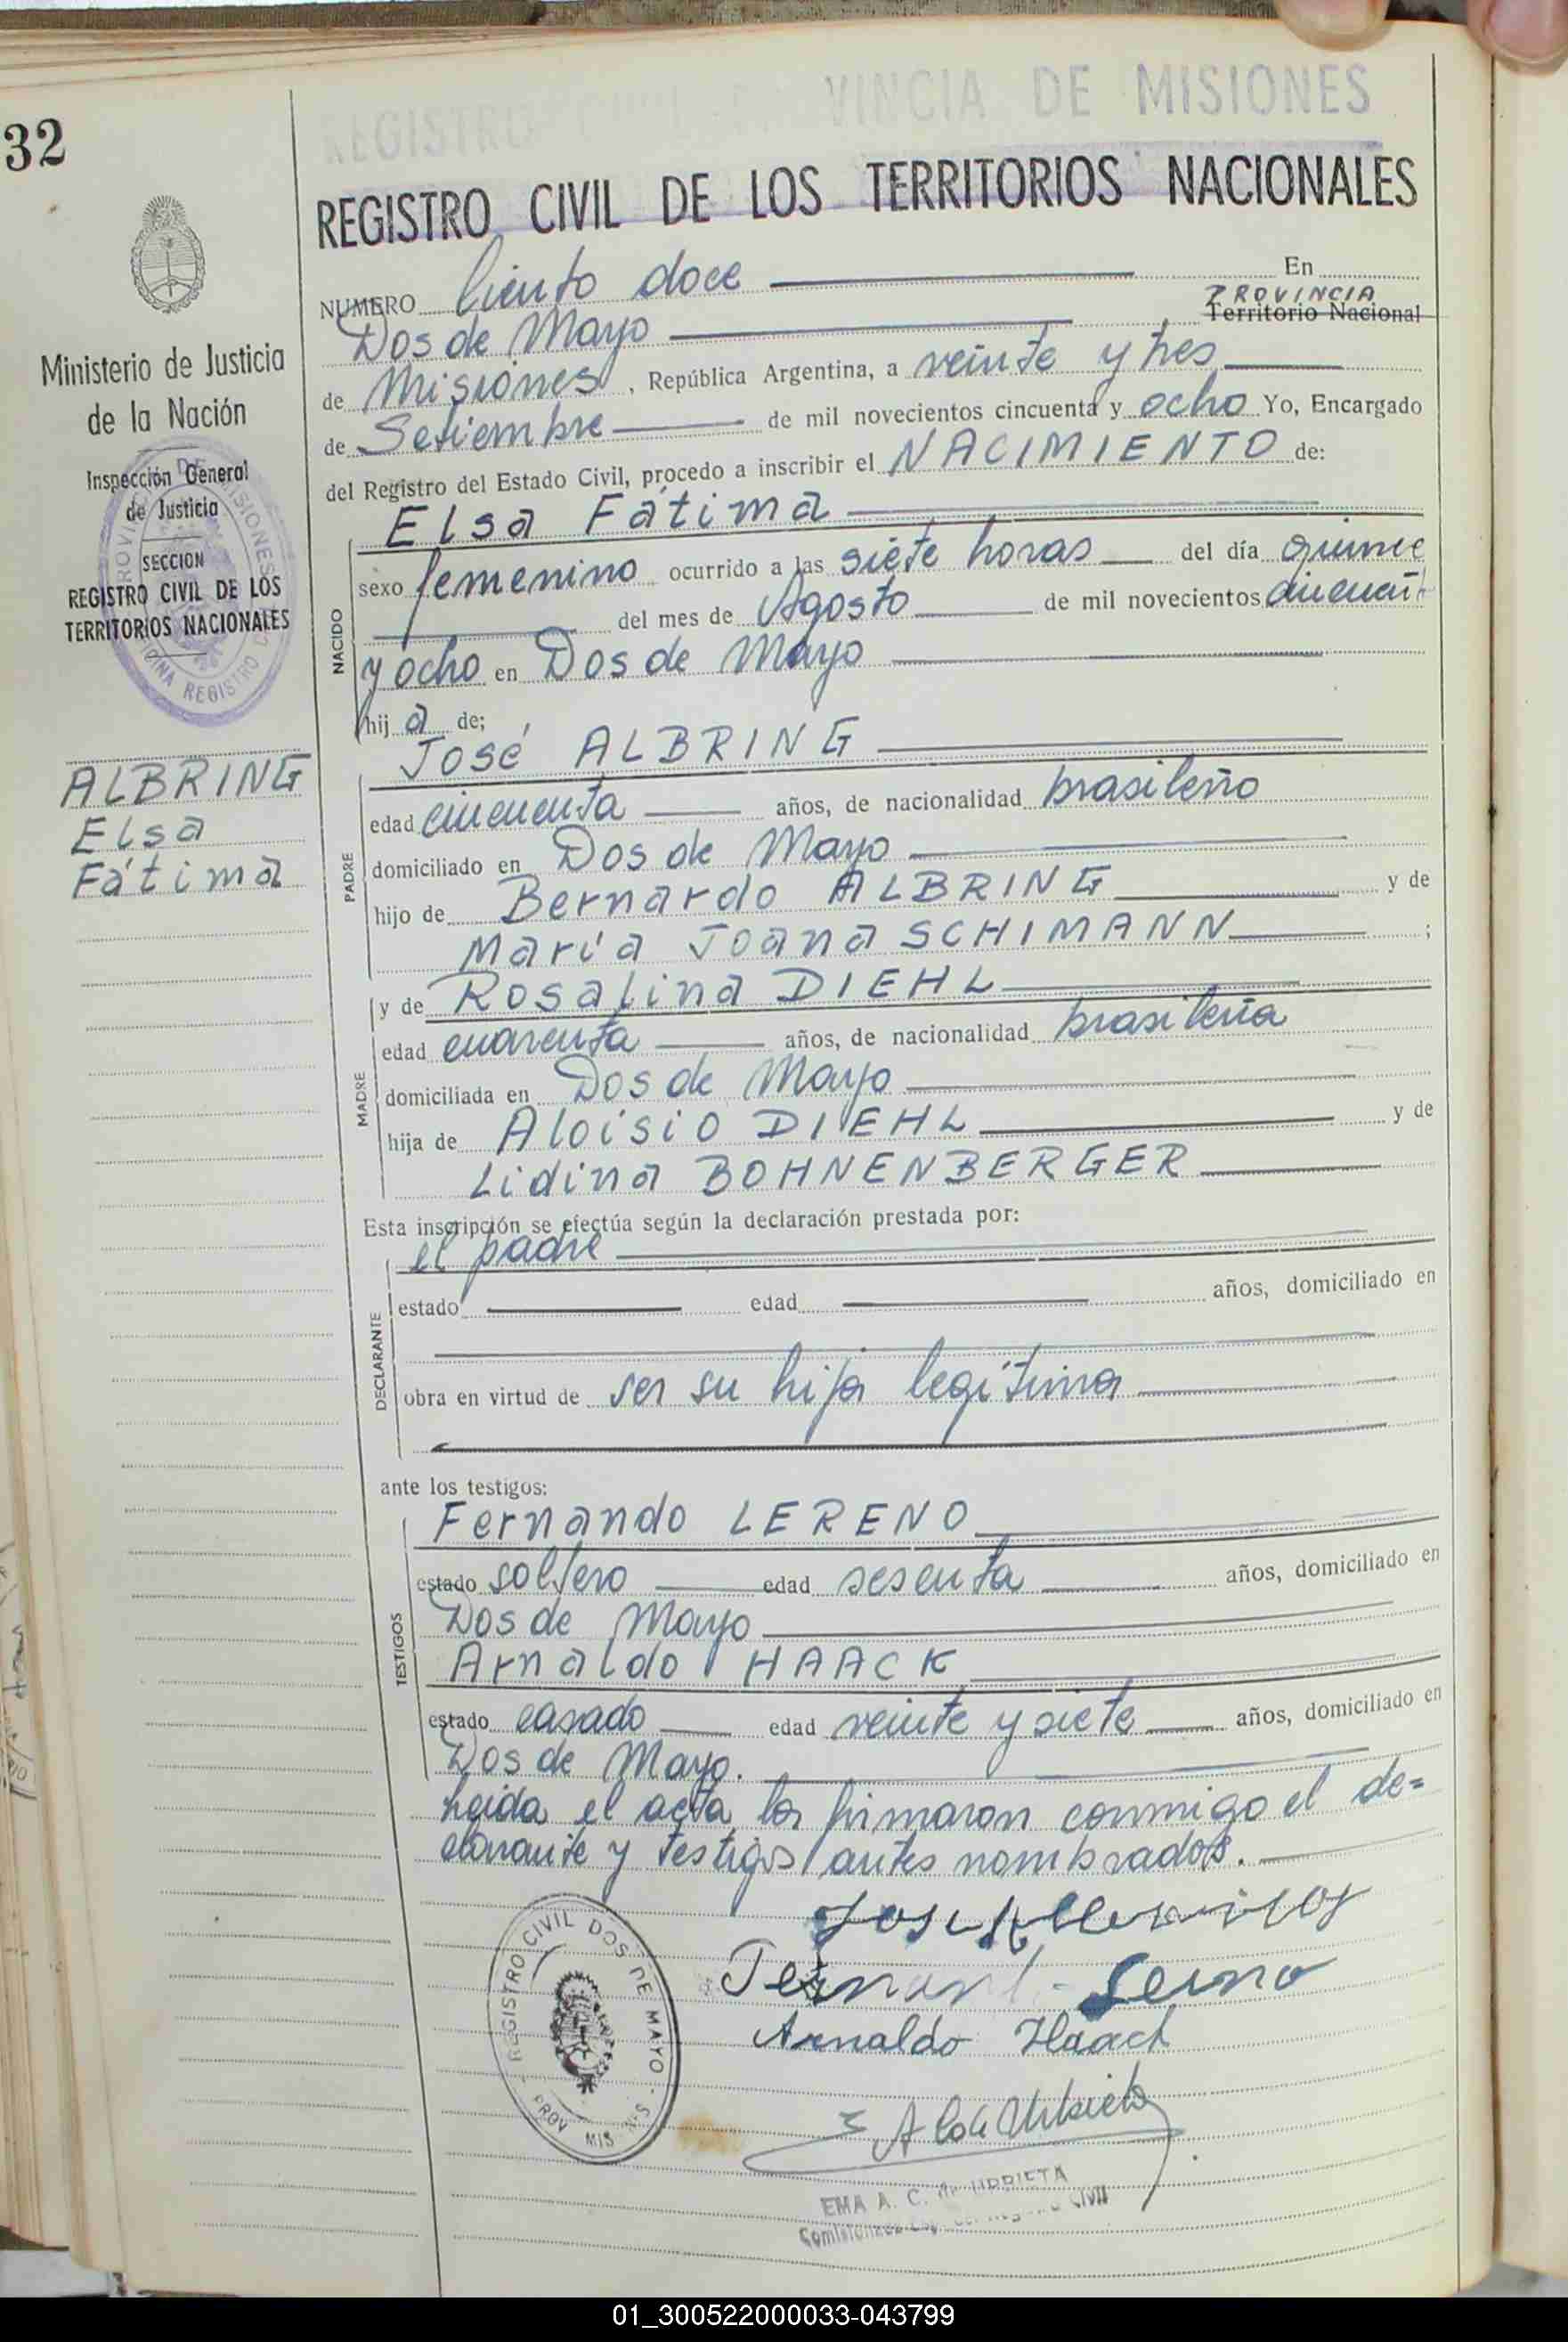 32
REGISTRO CIVIL VINCIA DE MISIONES
REGISTRO CIVIL DE LOS TERRITORIOS NACIONALES
NUMERO Ciento doce En
Dos de Mayo PROVINCIA Territorio Nacional
de Misiones, República Argentina, a veinte y tres
de Setiembre de mil novecientos cincuenta y ocho Yo, Encargado
del Registro del Estado Civil, procedo a inscribir el NACIMIENTO de:
Elsa Fátima
NACIDO
sexo femenino ocurrido a las siete horas del día quince
del mes de Agosto de mil novecientos cincuent
y ocho en Dos de Mayo
hij a de;
PADRE
José ALBRING
edad cincuenta años, de nacionalidad brasileño
domiciliado en Dos de Mayo
hijo de Bernardo ALBRING y de
María Joana SCHIMANN ;
MADRE
y de Rosalina DIEHL
edad cuarenta años, de nacionalidad brasileña
domiciliada en Dos de Mayo
hija de Aloisio DIEHL y de
Lidina BOHNENBERGER
Esta inscripción se efectúa según la declaración prestada por:
DECLARANTE
el padre
estado edad años, domiciliado en
obra en virtud de ser su hija legítima
ante los testigos:
TESTIGOS
Fernando LERENO
estado soltero edad sesenta años, domiciliado en
Dos de Mayo
Arnaldo HAACK
estado casado edad veinte y siete años, domiciliado en
Dos de Mayo.
Leída el acta, la firmaron conmigo el de=
clarante y testigos antes nombrados.
Arnaldo Haack
REGISTRO CIVIL DOS DE MAYO
PROV MIS
EMA A. C. de URRIETA
Ministerio de Justicia
de la Nación
Inspección General
de Justicia
SECCION
REGISTRO CIVIL DE LOS
TERRITORIOS NACIONALES
ALBRING
Elsa
Fátima
01_300522000033-043799